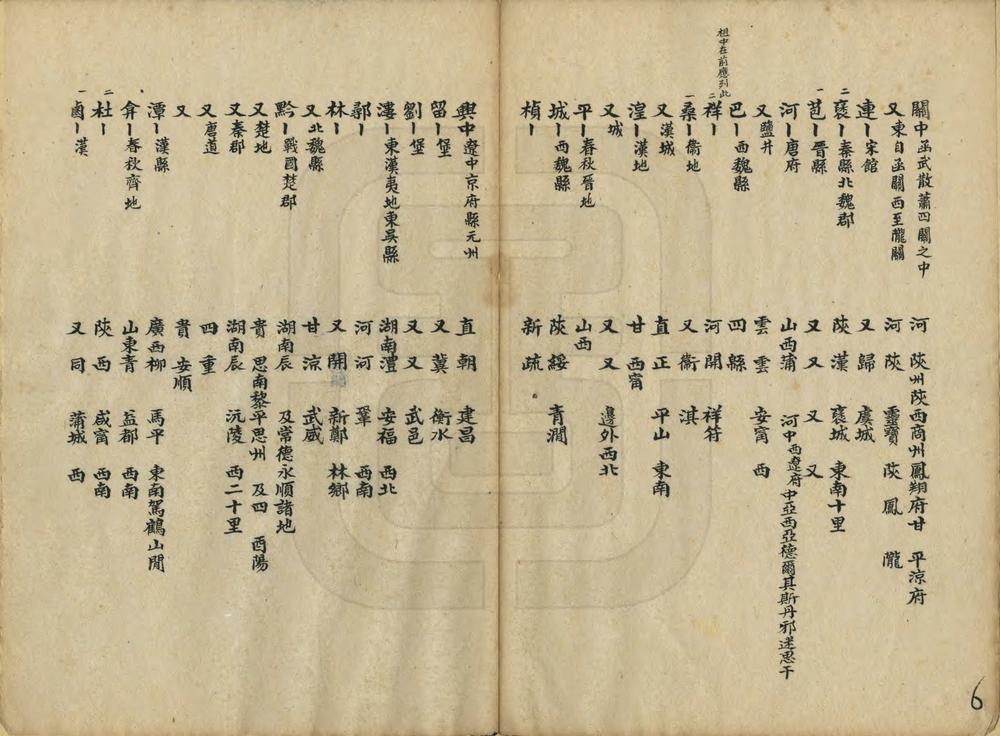 關中 函武散蕭四關之中 河 陝州陝西商州鳳翔府甘 平涼府
又 東自函關西至隴關 河 陝 靈寶 陝 鳳 隴
連〡 宋館 又 歸 虞城
二 襃〡 秦縣北魏郡 陝 漢 襃城 東南十里
一 芑〡 晉縣 又 又 又 又
河〡 唐府 山西蒲 河中西遼府中亞西亞德爾其斯丹邪迷思干
又 鹽井 雲 雲 安甯 西
巴〡 西魏縣 四 縣
祖中在前應列此
二 祥〡 河 開 祥符
一 桑〡 衞地 又 衞 淇
又 漢城 直 正 平山 東南
湟〡 漢地 甘 西甯
又 城 又 又 邊外西北
平〡 春秋晉地 山西
城〡 西魏縣 陝 綏 青澗
楨〡 新 疏
興中 遼中京府縣元州 直 朝 建昌
留〡 堡 又 冀 衡水
劉〡 堡 又 又 武邑
漊〡 東漢夷地東吳縣 湖南澧 安福 西北
鄩〡 河 河 鞏 西南
林〡 又 開 新鄭 林鄉
又 北魏縣 甘 涼 武威
黔〡 戰國楚郡 湖南辰 及常德永順諸地
又 楚地 貴 思南黎平思州 及四 酉陽
又 秦郡 湖南辰 沅陵 西二十里
又 唐道 四 重
又 貴 安順
潭〡 漢縣 廣西柳 馬平 東南駕鶴山閒
弇〡 春秋齊地 山東青 益都 西南
二 杜〡 陝 西 咸甯 西南
一 鹵〡 漢 又 同 蒲城 西
6